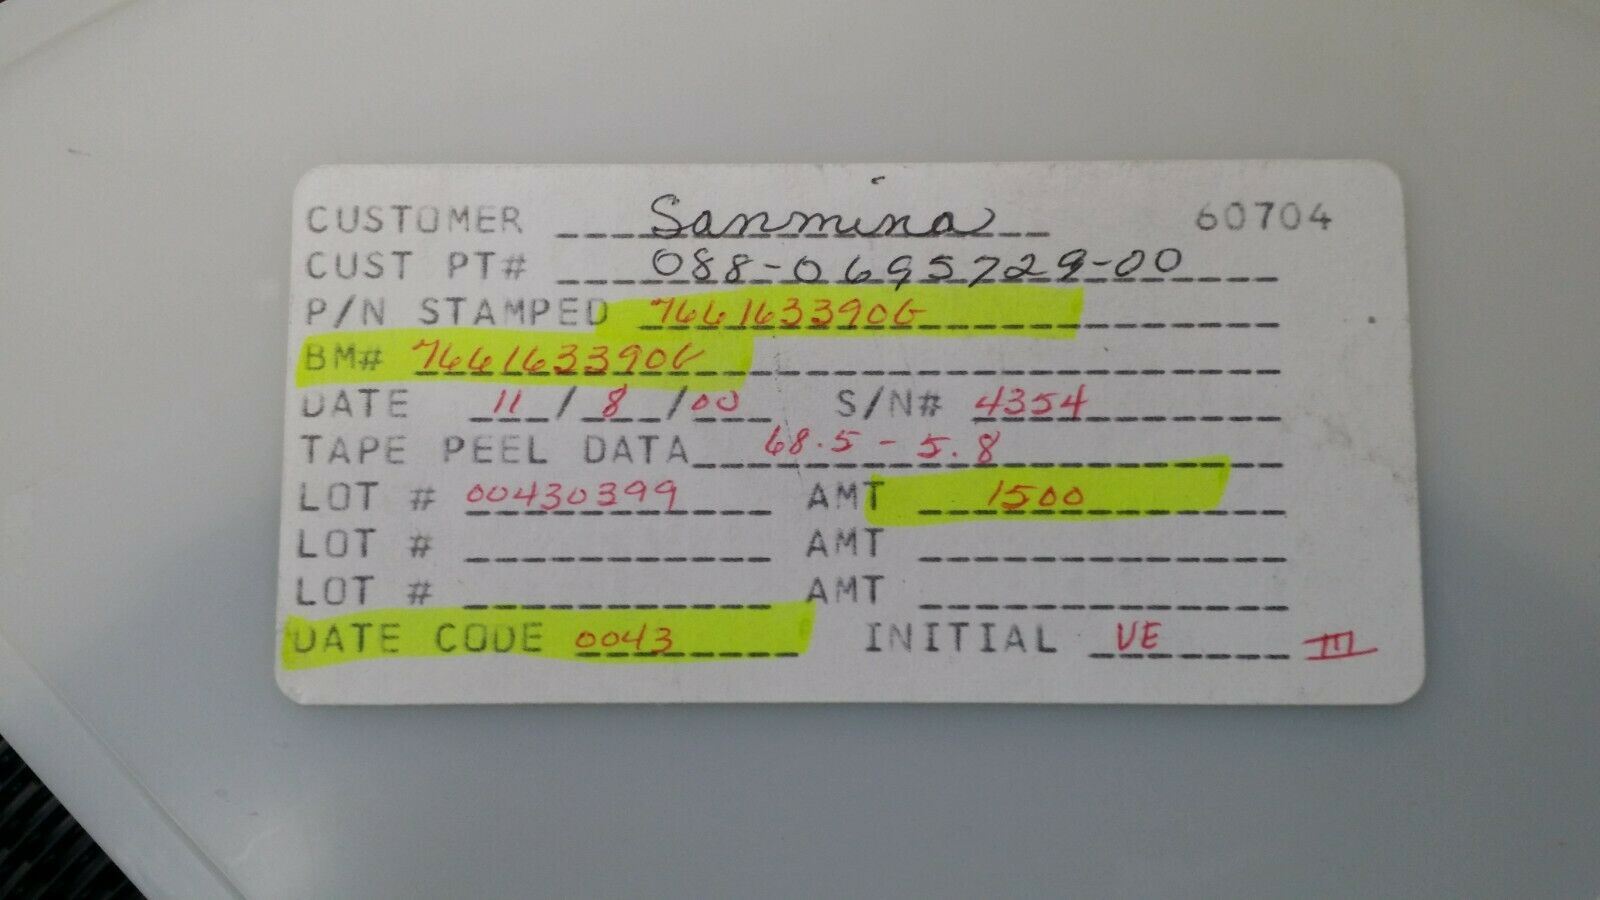 CUSTOMER Sanmina 60704
CUST PT# 088-0695729-00
P/N STAMPED 766163390G
BM# 766163390G
DATE 11/8/00 S/N# 4354
TAPE PEEL DATA 68.5-5.8
LOT # 00430399 AMT 1500
LOT # AMT
LOT # AMT
DATE CODE 0043 INITIAL VE III